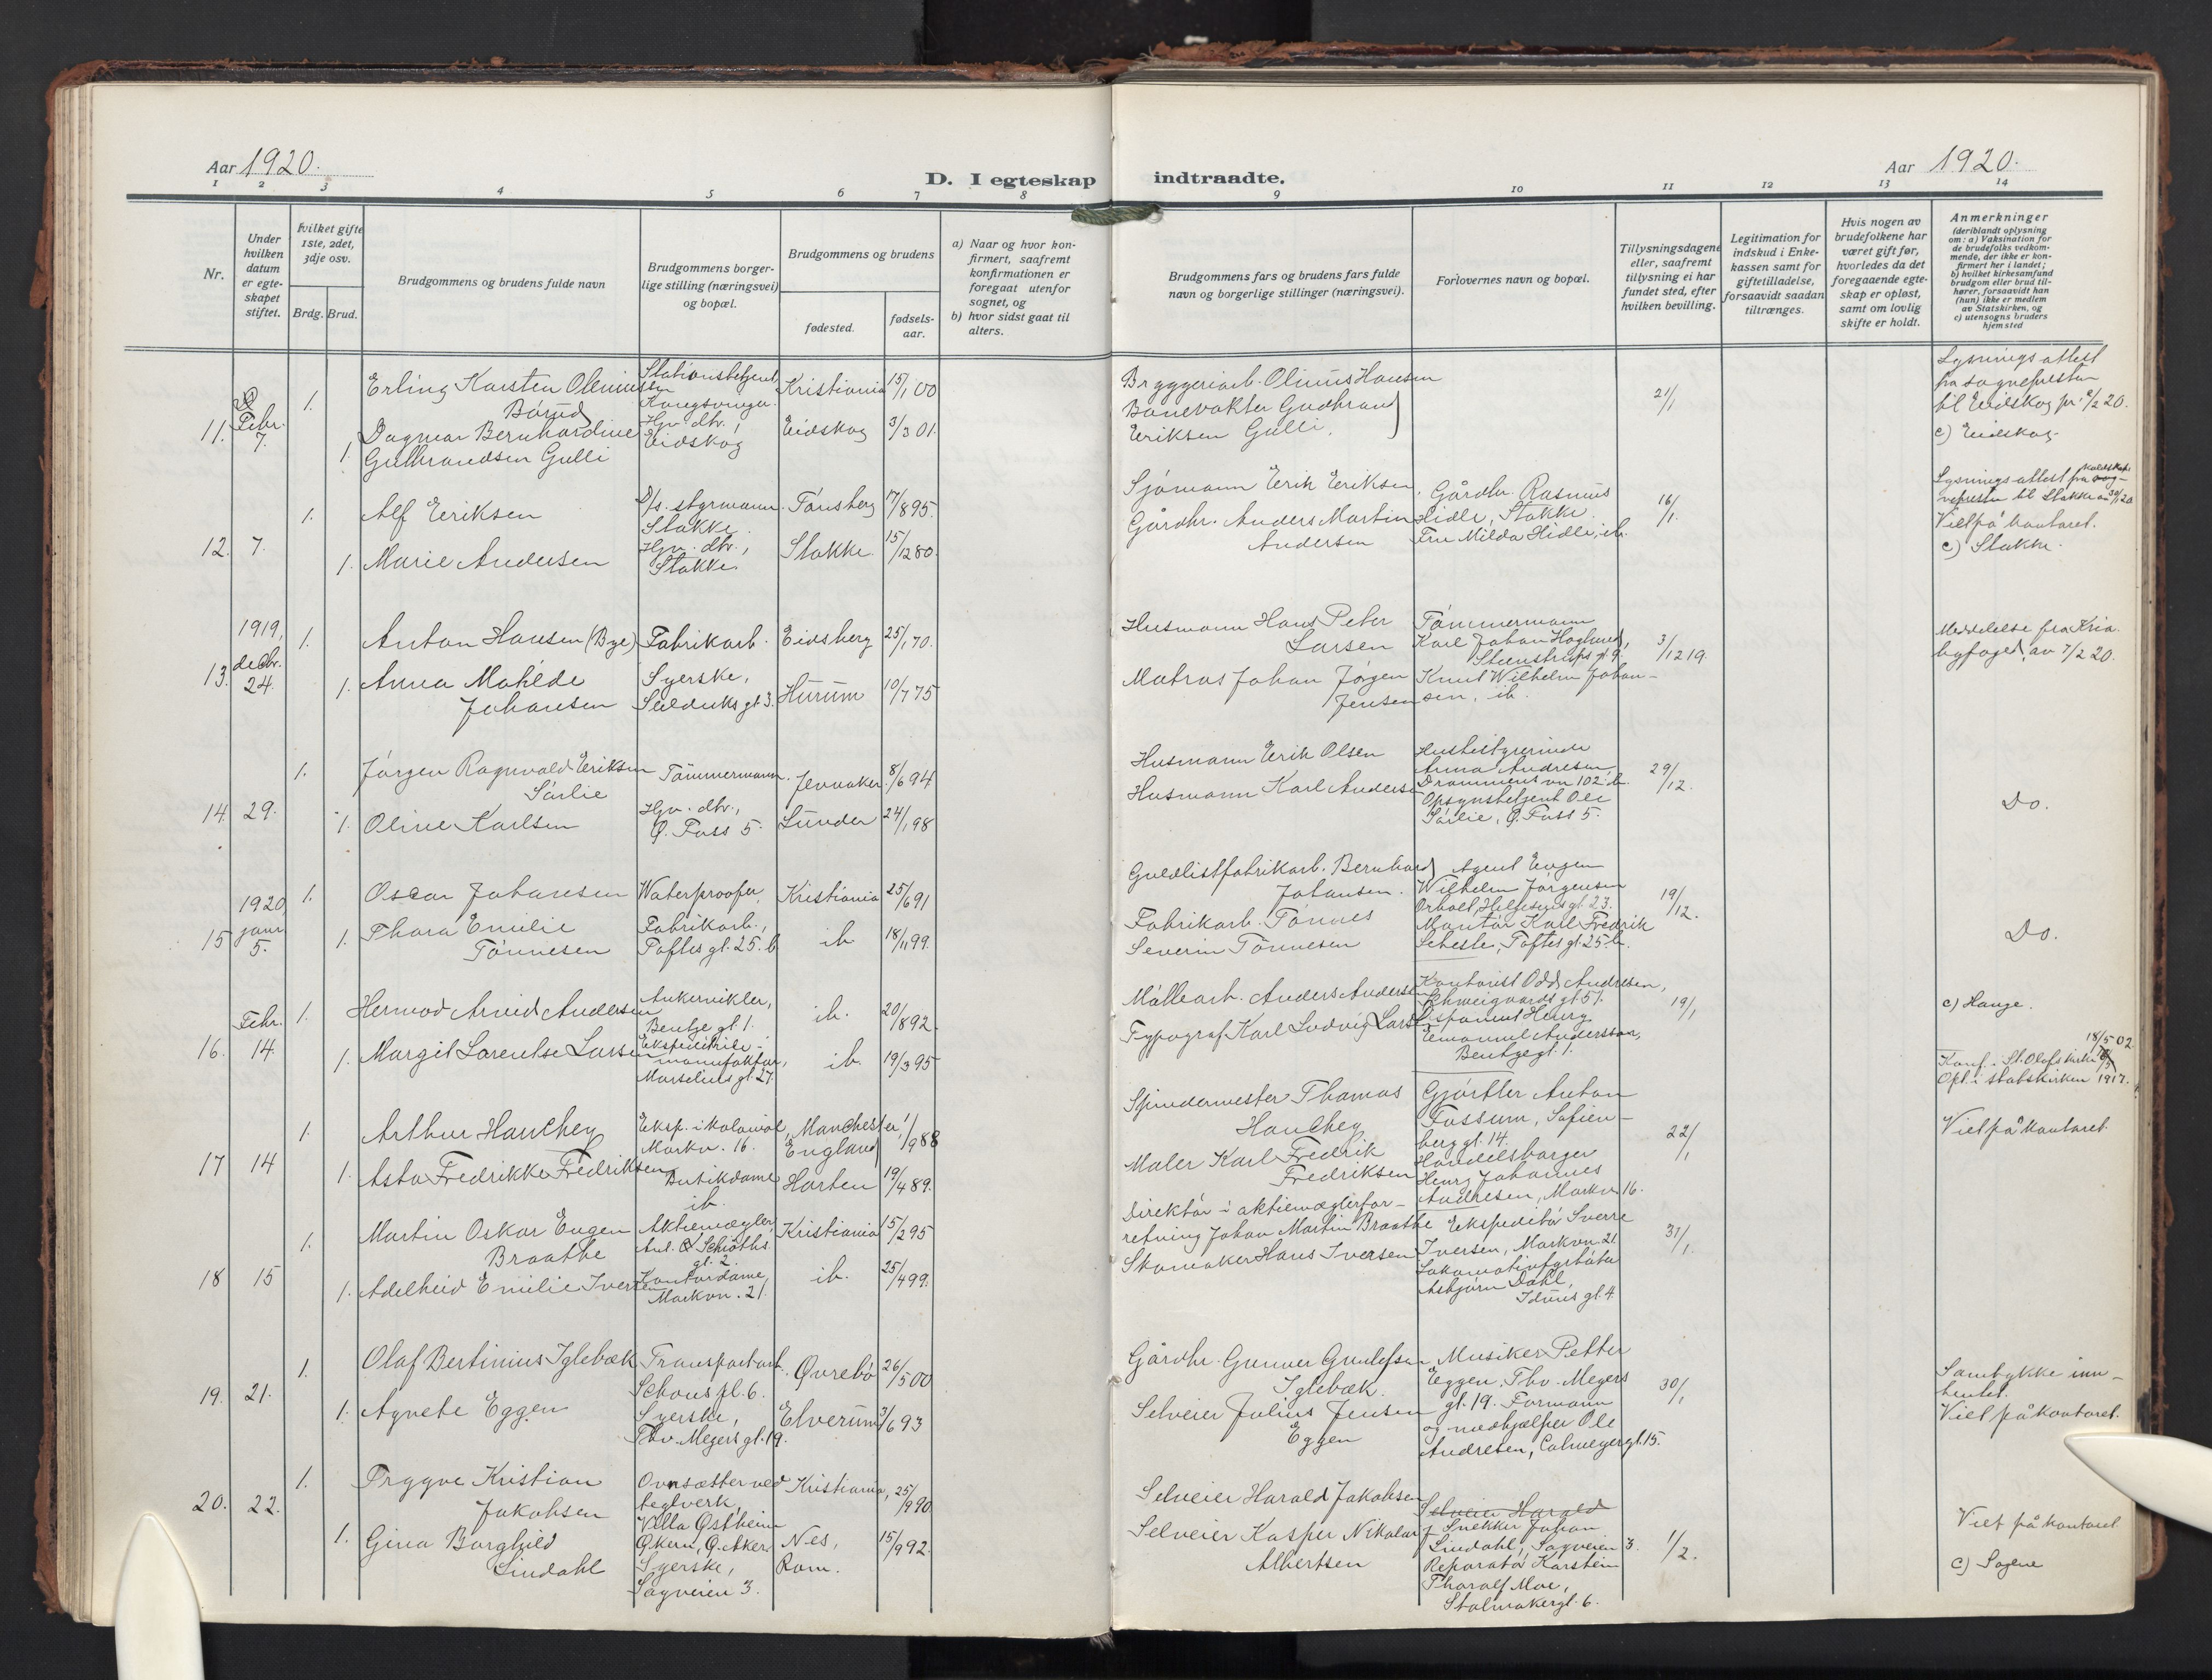 Aar 1920.
D. I egteskap indtraadte.
Aar 1920.
1 2 3 4 5 6 7 8 9 10 11 12 13 14
Nr.
Under hvilken datum er egteskapet stiftet.
hvilket gifte 1ste, 2det, 3dje osv.
Brdg. Brud.
Brudgommens og brudens fulde navn
Brudgommens borgerlige stilling (næringsvei) og bopæl.
Brudgommens og brudens
fødested.
fødselsaar.
a) Naar og hvor konfirmert, saafremt konfirmationen er foregaat utenfor sognet, og
b) hvor sidst gaat til alters.
Brudgommens fars og brudens fars fulde navn og borgerlige stillinger (næringsvei).
Forlovernes navn og bopæl.
Tillysningsdagene eller, saafremt tillysning ei har fundet sted, efter hvilken bevilling.
Legitimation for indskud i Enkekassen samt for giftetilladelse, forsaavidt saadan tiltrænges.
Hvis nogen av brudefolkene har været gift før, hvorledes da det foregaaende egteskap er opløst, samt om lovlig skifte er holdt.
Anmerkninger
(deriblandt oplysning om: a) Vaksination for de brudefolks vedkommende, der ikke er konfirmert her i landet;
b) hvilket kirkesamfund brudgom eller brud tilhører, forsaavidt han (hun) ikke er medlem av Statskirken, og
c) utensogns bruders hjemsted
11. Febr. 7.
1. Erling Karsten Oleniussen Børud
Stationsbetjent, Kongsvinger
Kristiania 15/1 00
1. Dagmar Bernhardine Gulbrandsen Gulli
Hjv. dtr. Eidskog
Eidskog 3/3 01.
Bryggeriarb. Olinius Hansen
Banevakter Gudbrand Eriksen Gulli.
21/1
Lysningsattest fra sognepresten til Eidskog
c) Eidskog
12. 7.
1. Alf Eriksen
D/s. styrmann Stokke
Tønsberg 17/8 95.
1. Marie Andersen
Hjv. dtr., Stokke
Stokke. 15/12 80.
Sjømann Erik Eriksen.
Gårdbr. Anders Martin Andersen
Gårdbr. Rasmus Hidle, Stokke.
Fru Milda Hidle, ib.
16/1.
Lysningsattest fra
Viet på kontoret.
c) Stokke.
13. 1919, decbr. 24.
1. Anton Hansen (Bye)
Fabrikarb.
Eidsberg 25/1 70.
1. Anna Mathilde Johansen
Syerske, Seilduksgt. 3.
Hurum 10/7 75
Husmann Hans Peter Larsen
Matros Johan Jørgen Jensen
Tømmermann Karl Johan Høglund, Steenstrups gt. 9.
Knut Wilhelm Johansen, ib.
3/12 19.
Meddelelse fra Kria. byfoged av 7/2 20.
14. 29.
1. Jørgen Ragnvald Eriksen Sørlie
Tømmermann.
Jevnaker 8/6 94
1. Oline Karlsen
Hjv. dtr., Ø. Foss 5.
Lunder 24/1 98
Husmann Erik Olsen
Husmann Karl Andersen
Husbestyrerinde Anna Andresen, Drammensvn 102 b.
Opsynsbetjent Ole Sørlie, Ø. Foss 5.
29/12.
Do.
15 1920, janr. 5.
1. Oscar Johansen
Waterproofer,
Kristiania 25/6 91
1. Thora Emilie Tønnesen
Fabrikarb., Toftes gt. 25. b
ib 18/11 99.
Guldlistfabrikarb. Bernhard Johansen.
Fabrikarb. Tønnes Severin Tønnesen
Agent Eugen Wilhelm Jørgensen Orholt, Helgesens gt. 23.
Montør Karl Fredrik Toftes gt. 25 b.
19/12.
Do.
16. Febr. 14.
1. Hermod Arvid Andersen
Ankervikler, Bentse gt. 1.
ib. 20/8 92.
1. Margit Lorentse Larsen
manufaktur, Marselius gt. 27.
ib. 19/3 95
Møllearb. Anders Andersen
Typograf Karl Ludvig Larsen
Kontorist Odd Andresen, Schweigaards gt. 51.
Disponent Henry Emanuel Anderssen, Bentsegt. 1.
19/1
c) Hauge.
18/5 02
Konf. i St. Olafs kirke
Opt. i statskirken 1917.
17 14
1. Arthur Hanchey
Eksp. i kolonial, Markv. 16.
Manchester, England 1/9 88
1. Asta Fredrikke Fredriksen
Butikdame ib.
Horten 19/4 89.
Spindermester Thomas Hanchey
Maler Karl Fredrik Fredriksen
Gjørtler Anton Fossum, Sofienberggt. 14.
Handelsborger Henry Johannes Andresen, Markv. 16.
22/1
Viet på kontoret.
18 15
1. Martin Oskar Eugen Braathe
Aktiemægler, Aul. Schiøthsgt. 2.
Kristiania 15/2 95
1. Adelheid Emilie Iversen
Kontordame, Markvn. 21.
ib. 25/4 99.
Direktør i aktiemæglerforretning Johan Martin Braathe
Skomaker Hans Iversen
Ekspeditør Sverre Iversen, Markvn. 21
Lokomotivfyrbøter Asbjørn Dahl, Iduns gt. 4.
31/1.
19. 21.
1. Olaf Bertinius Iglebæk
Transportarb. Schous pl. 6.
Øvrebø 26/5 00
1. Agnete Eggen
Syerske, Thv. Meyers gt. 19.
Elverum 3/6 93
Gårdbr. Gunner Gunlefsen Iglebæk.
Selveier Julius Jensen Eggen
Musiker Petter Eggen, Thv. Meyers gt. 19.
Formann og medhjælper Ole Andresen, Calmeyergt. 15.
30/1
Samtykke innhentet.
Viet på kontoret.
20. 22.
1. Trygve Kristian Jakobsen
Ovnsætter ved teglverk, Villa Østheim Økern, Ø. Aker
Kristiania, 25/9 90
1. Gina Borghild Lindahl
Syerske, Sagveien 3.
Nes, Rom. 15/9 92.
Selveier Harald Jakobsen
Selveier Kasper Nikolai Albertsen
Selveier Harald
Snekker Johan Lindahl, Sagveien 3.
Reparatør Karstein Tharalf Moe, Stolmakergt. 6.
1/2.
Viet på kontoret
c) Sagene